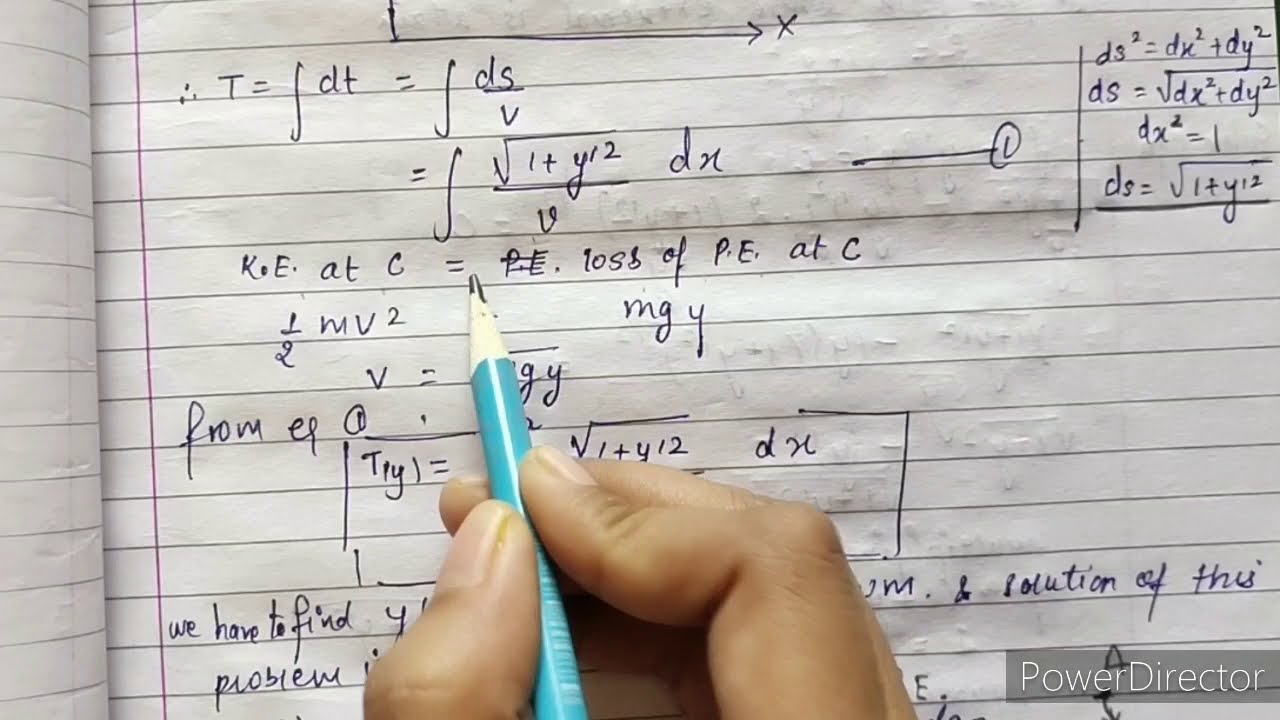 x
∴ T = ∫ dt = ∫ ds/v
= ∫ √1+y'2/v dx ——— ①
ds² = dx² + dy²
ds = √dx²+dy²
dx² = 1
ds = √1+y'2
K.E. at C = P.E. loss of P.E. at C
1/2 mv2 mgy
v = gy
from eq ①
T(y) = √1+y'2 dx
we have to find y m. & solution of this
problem E.
A
PowerDirector